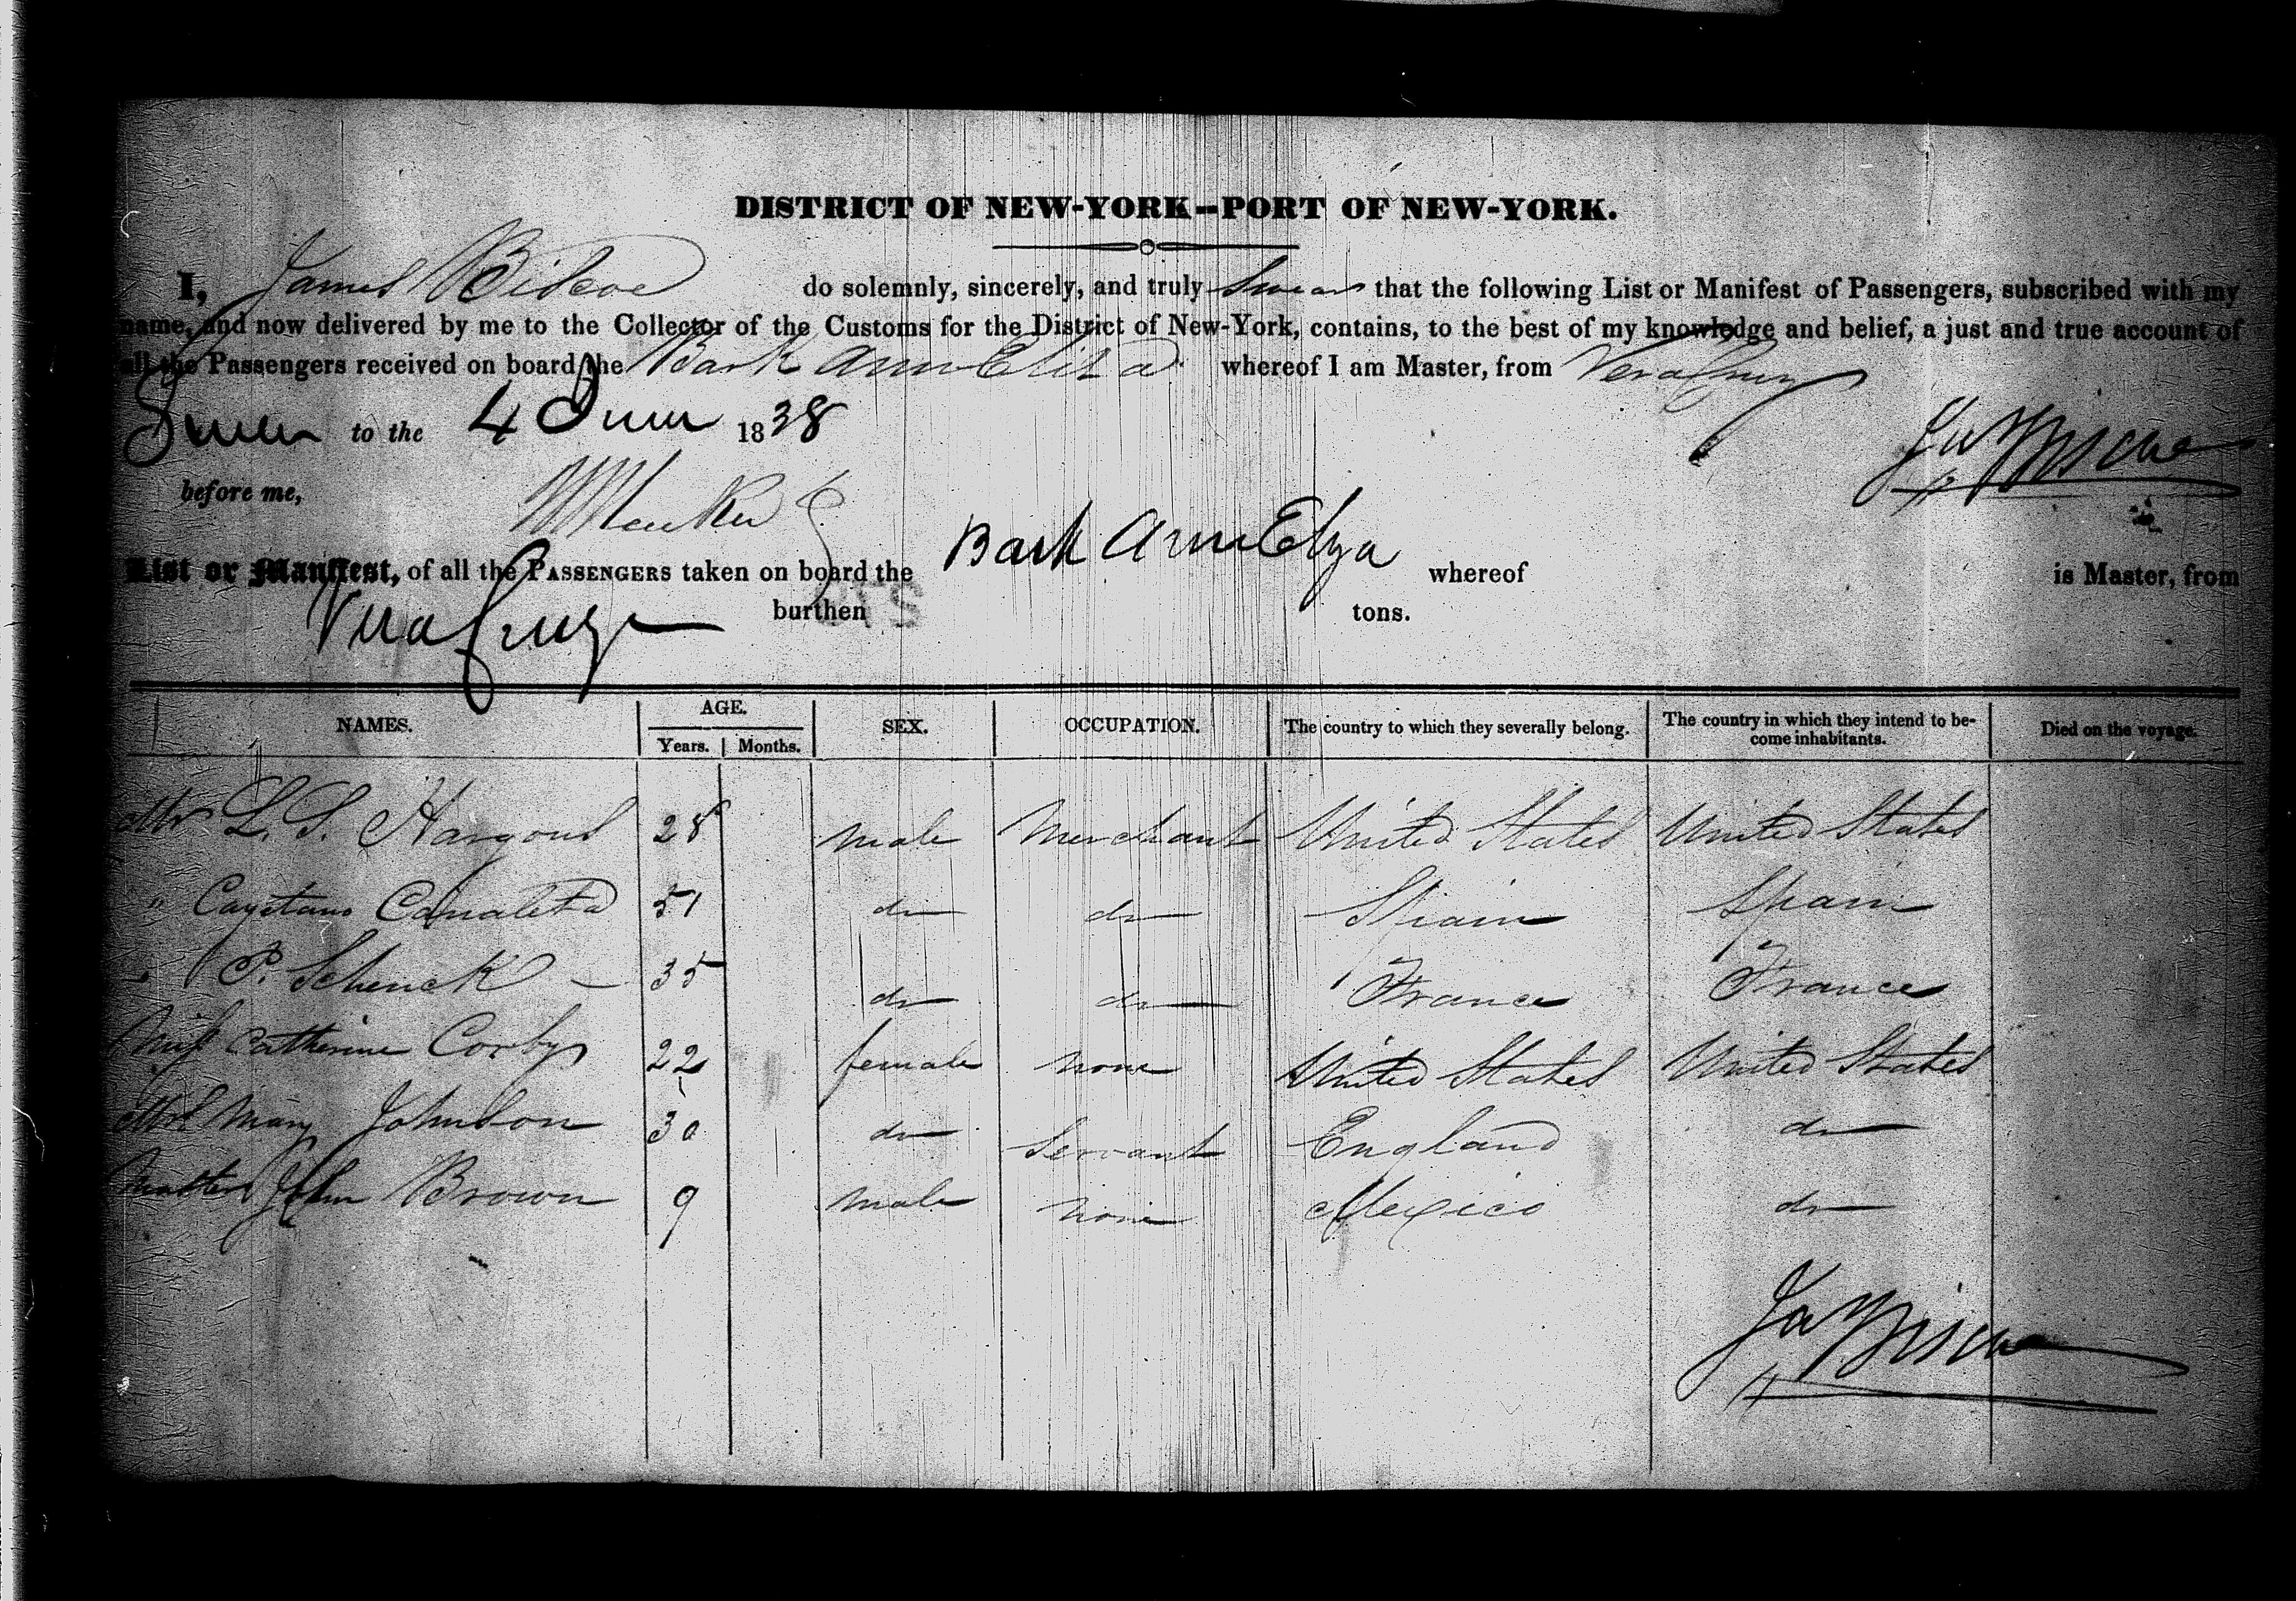 DISTRICT OF NEW-YORK--PORT OF NEW-YORK.
I, James Biscoe do solemnly, sincerely, and truly Swear that the following List or Manifest of Passengers, subscribed with my
name, and now delivered by me to the Collector of the Customs for the District of New-York, contains, to the best of my knowledge and belief, a just and true account of
all the Passengers received on board the Bark Ann Eliza whereof I am Master, from Vera Cruz
to the 4 June 1838
Jas Biscoe
before me,
List or Manifest, of all the PASSENGERS taken on board the Bark Ann Eliza whereof is Master, from
Vera Cruz burthen tons.
NAMES. AGE. Years. Months. SEX. OCCUPATION. The country to which they severally belong. The country in which they intend to become inhabitants. Died on the voyage.
Mr L. S. Hargous 28 male Merchant United States United States
" Cayetano Canaleta 51 do do Spain Spain
" P. Schenck 35 do do France France
Miss Catherine Corby 22 female none United States United States
Mrs Mary Johnson 30 do Servant England do
Master John Brown 9 male none Mexico do
Jas Biscoe